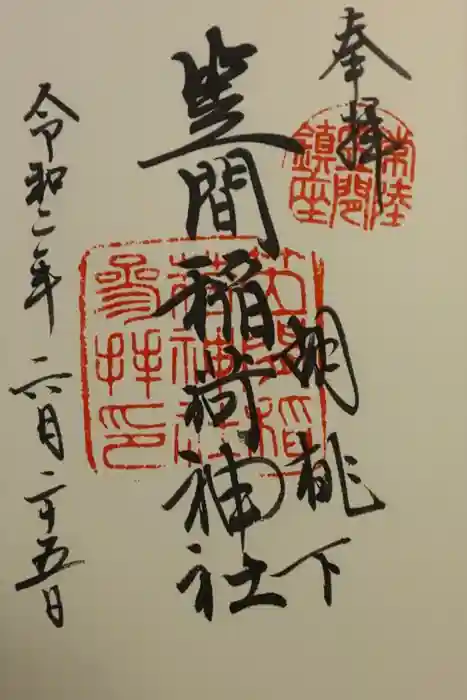 奉拝
常陸
笠間
鎮座
胡桃下
笠間稲荷神社
笠間稲
荷神社
参拝印
令和二年六月二十五日